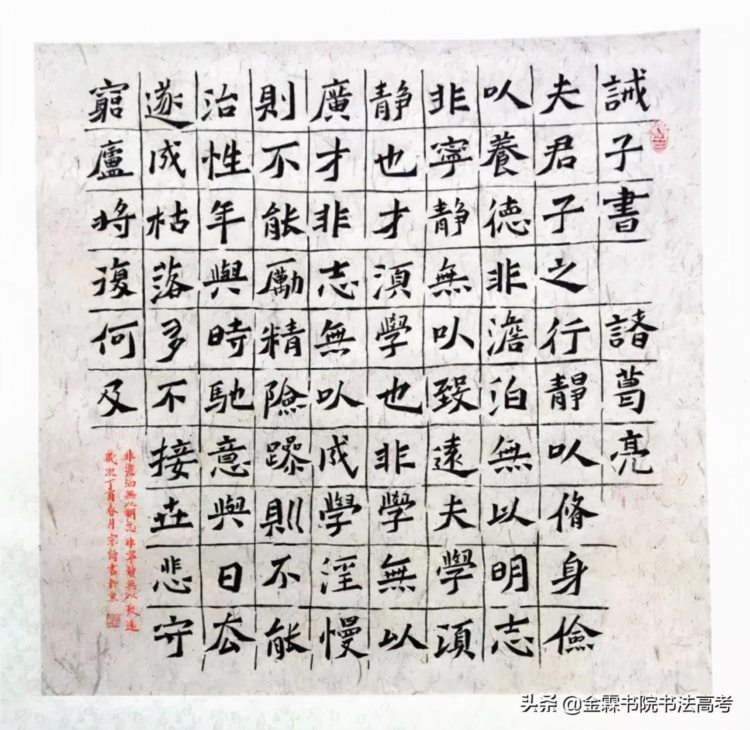 誡子書 諸葛亮
夫君子之行靜以脩身儉
以養德非澹泊無以明志
非寧靜無以致遠夫學須
静也才須學也非學無以
廣才非志無以成學淫慢
則不能勵精險躁則不能
治性年與時馳意與日去
遂成枯落多不接世悲守
窮廬將復何及
非澹泊無以明志非寧靜無以致遠
歲次丁酉春月
头条 @金霖书院书法高考